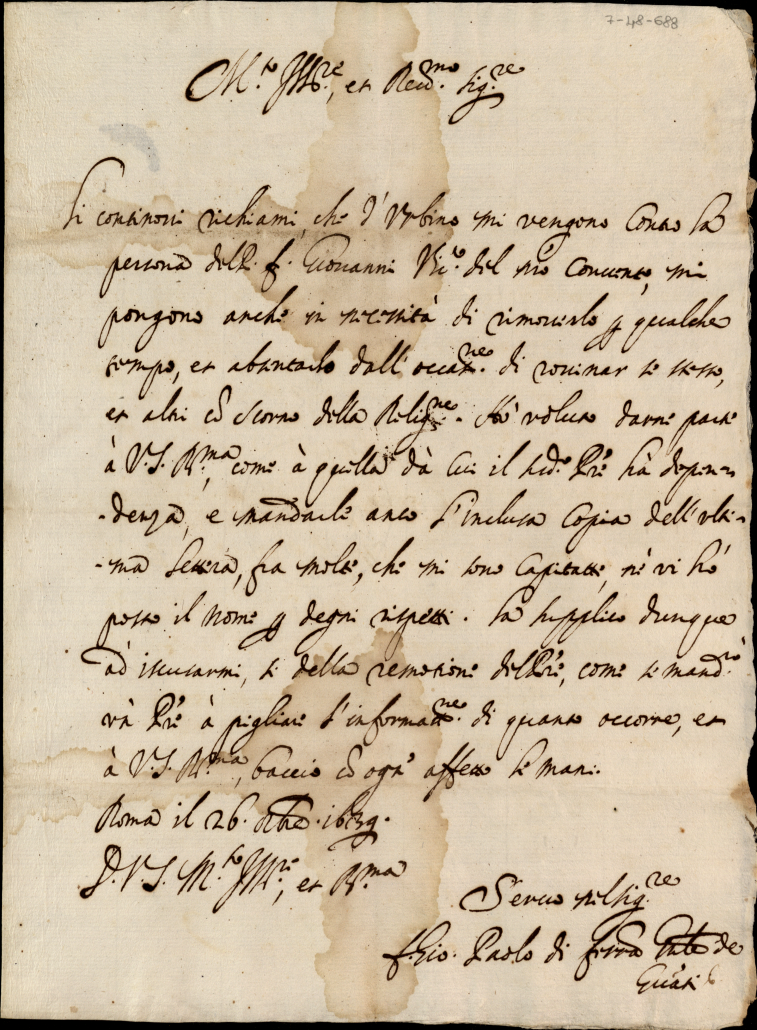 7-48-688
M.to Ill.re, et Rev.mo Sig.re
Li continovi richiami, che d'Urbino mi vengono contro la
persona del P. f. Giovanni Vic.o del nr̃o Convento, mi
pongono anche in necessità di rimoverlo p qualche
tempo, et absentarlo dall'occas.ne di rovinar se stesso,
et altri cõ scorno della Relig.ne. Hò voluto darne parte
à V.S. R.ma, come à quella dà cui il sud.o Prẽ hà depen-
-denza, e mandarle anco l'inclusa copia dell'ulti-
-ma lettera, fra molte, che mi sono capitate, nè vi hò
posto il nome p degni rispetti. La supplico dunque
ad iscusarmi, se della remotione del Prẽ, come se mand.rò
un Prẽ à pigliare l'informat.ne di quanto occorre, et
à V.S. R.ma, baccio cõ ogn'affetto le mani.
Roma il 26. 1639.
D. V. S. M.to Ill.re, et R.ma
Servo nel Sig.re
f. Gio. Paolo di de